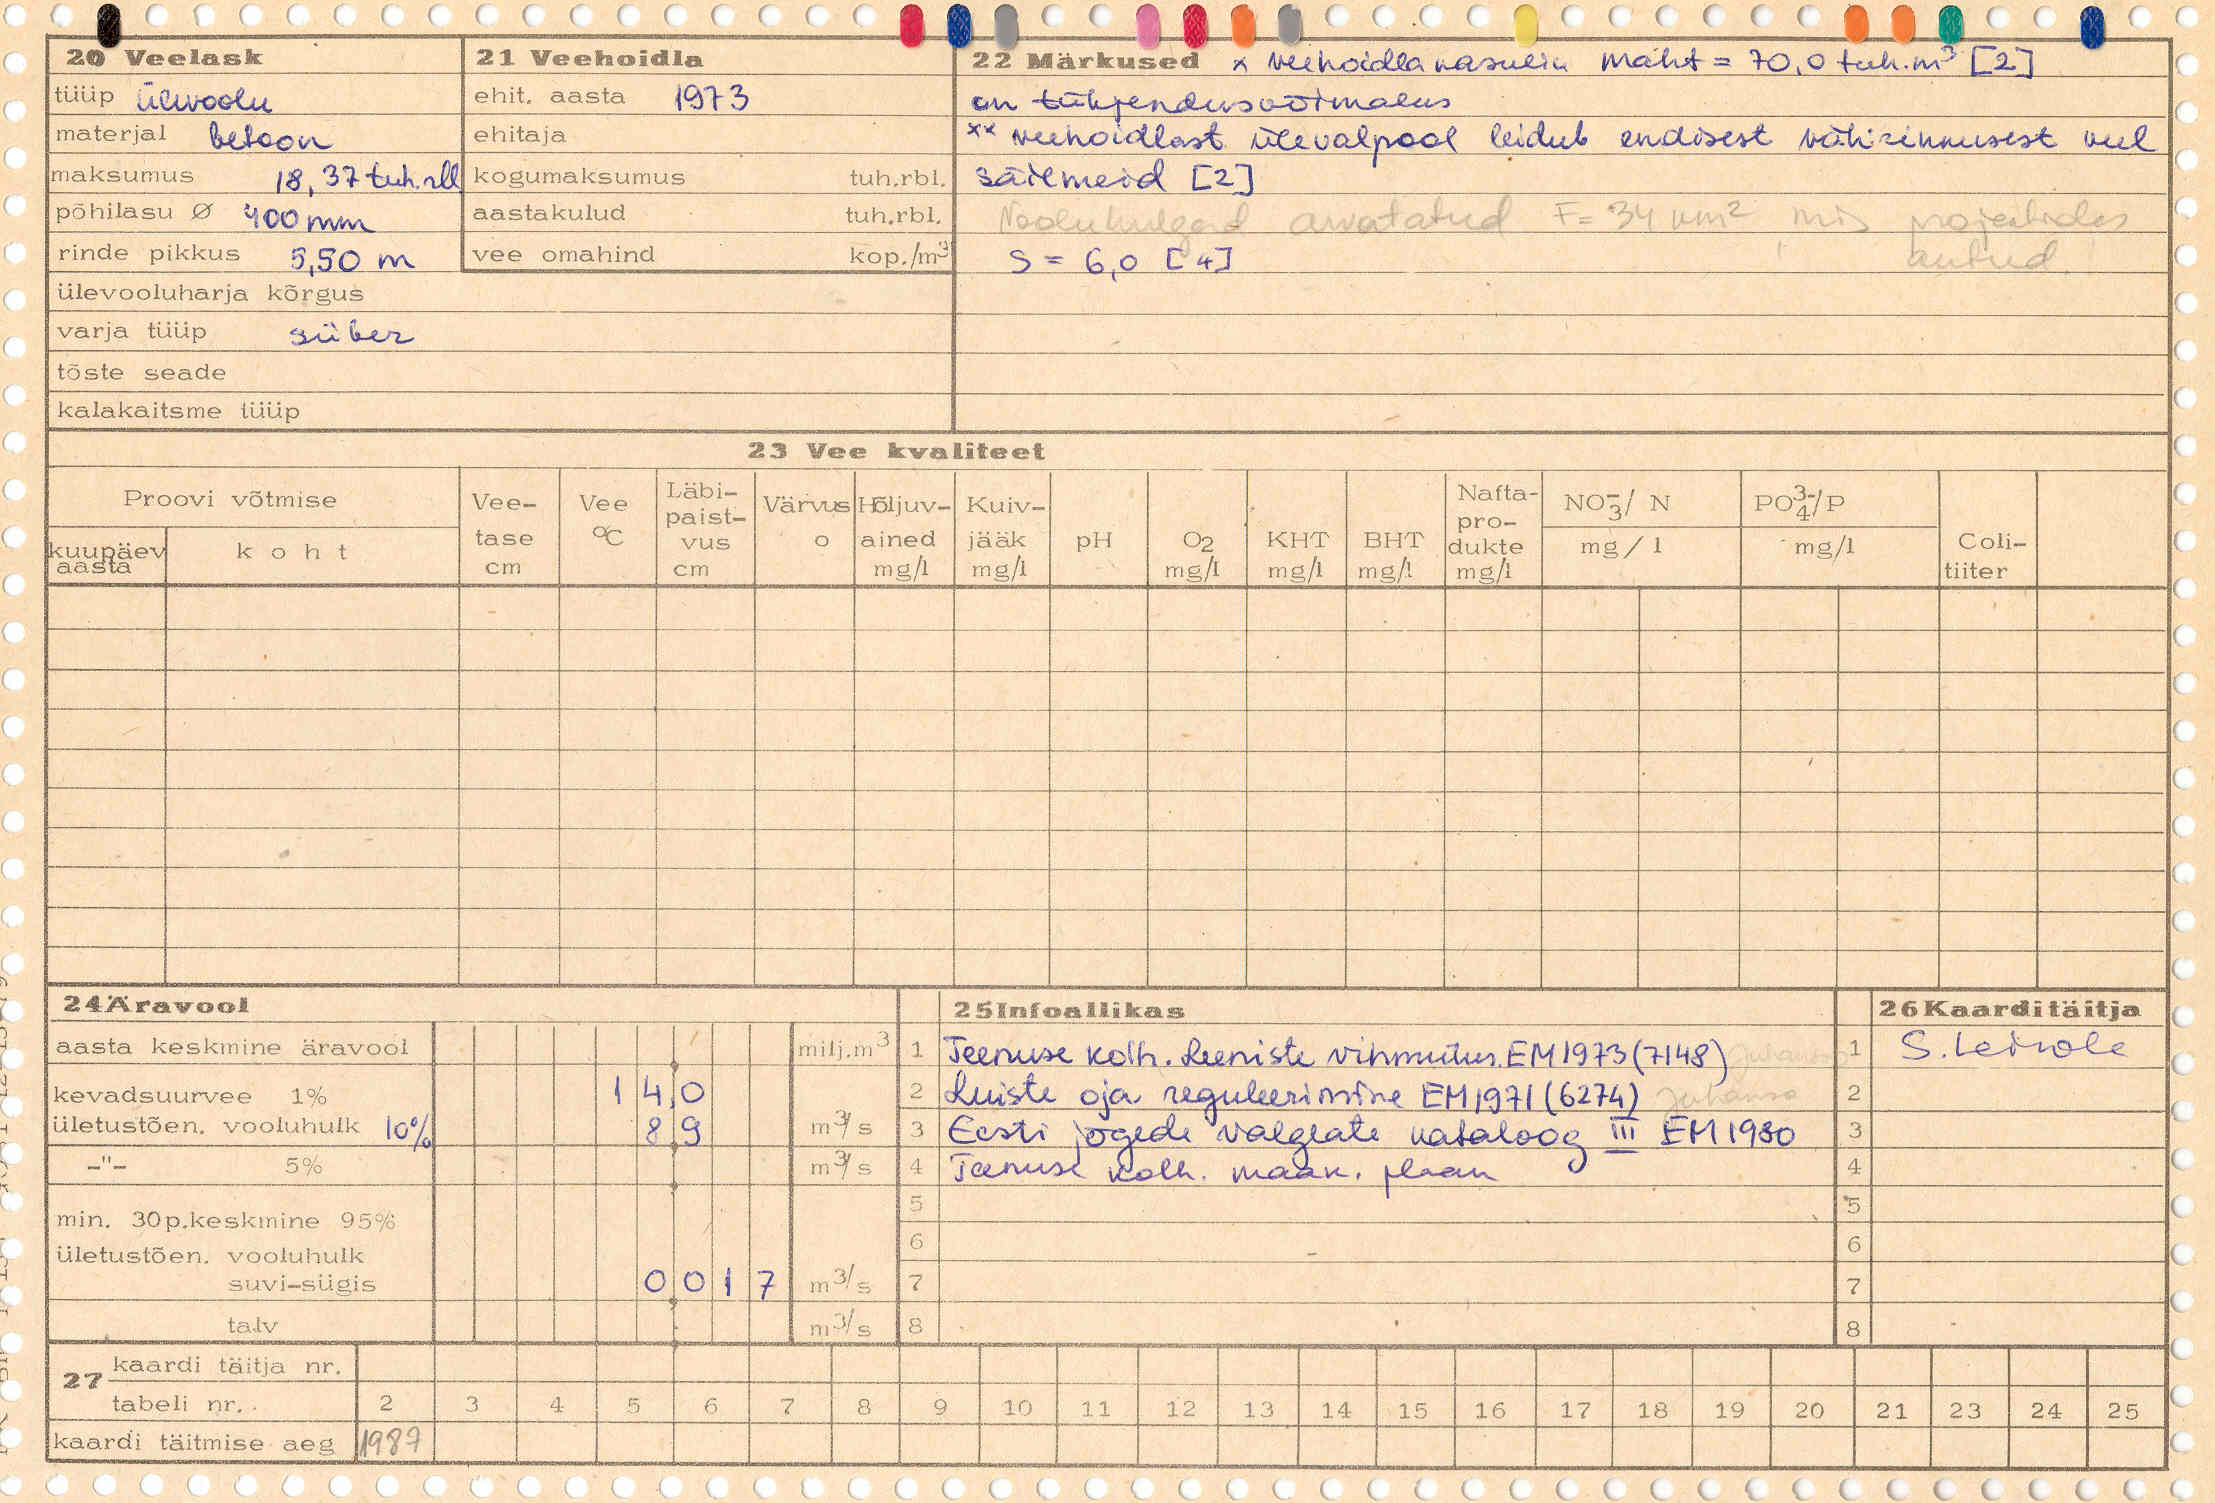 20 Veelask
tüüp ülevoolu
materjal betoon
maksumus 18,37 tuh.rbl
põhilasu Ø 400 mm
rinde pikkus 5,50 m
ülevooluharja kõrgus
varja tüüp siiber
tõste seade
kalakaitsme tüüp
21 Veehoidla
ehit. aasta 1973
ehitaja
kogumaksumus tuh.rbl.
aastakulud tuh.rbl.
vee omahind kop./m³
22 Märkused x veehoidla kasulik maht = 70,0 tuh.m³ [2]
on tühjendusvõimalus
xx veehoidlast ülevalpool leidub endisest vähirikkusest veel
säilmeid [2]
Vooluhulgad arvutatud F = 34 km² mis projektides
antud.
S = 6,0 [4]
23 Vee kvaliteet
Proovi võtmise
kuupäev aasta
koht
Vee-tase cm
Vee °C
Läbi-paist-vus cm
Värvus o
Hõljuv-ained mg/l
Kuiv-jääk mg/l
pH
O₂ mg/l
KHT mg/l
BHT mg/l
Nafta-pro-dukte mg/l
NO₃⁻/N mg/l
PO₄³⁻/P mg/l
Coli-tiiter
24 Äravool
aasta keskmine äravool milj.m³
kevadsuurvee 1% 14,0
ületustõen. vooluhulk 10% 8,9 m³/s
-"- 5% m³/s
min. 30p.keskmine 95%
ületustõen. vooluhulk
suvi-sügis 0 0 1 7 m³/s
talv m³/s
25 Infoallikas
1 Teenuse kolh. Leeniste vihmutus. EM 1973 (7148) Juhanso
2 Luiste oja reguleerimine EM 1971 (6274) Juhanso
3 Eesti jõgede valglate kataloog III EM 1980
4 Teenuse kolh. maak. plaan
5
6
7
8
26 Kaarditäitja
1 S. Leivole
2
3
4
5
6
7
8
27 kaardi täitja nr.
tabeli nr. 2 3 4 5 6 7 8 9 10 11 12 13 14 15 16 17 18 19 20 21 23 24 25
kaardi täitmise aeg 1987